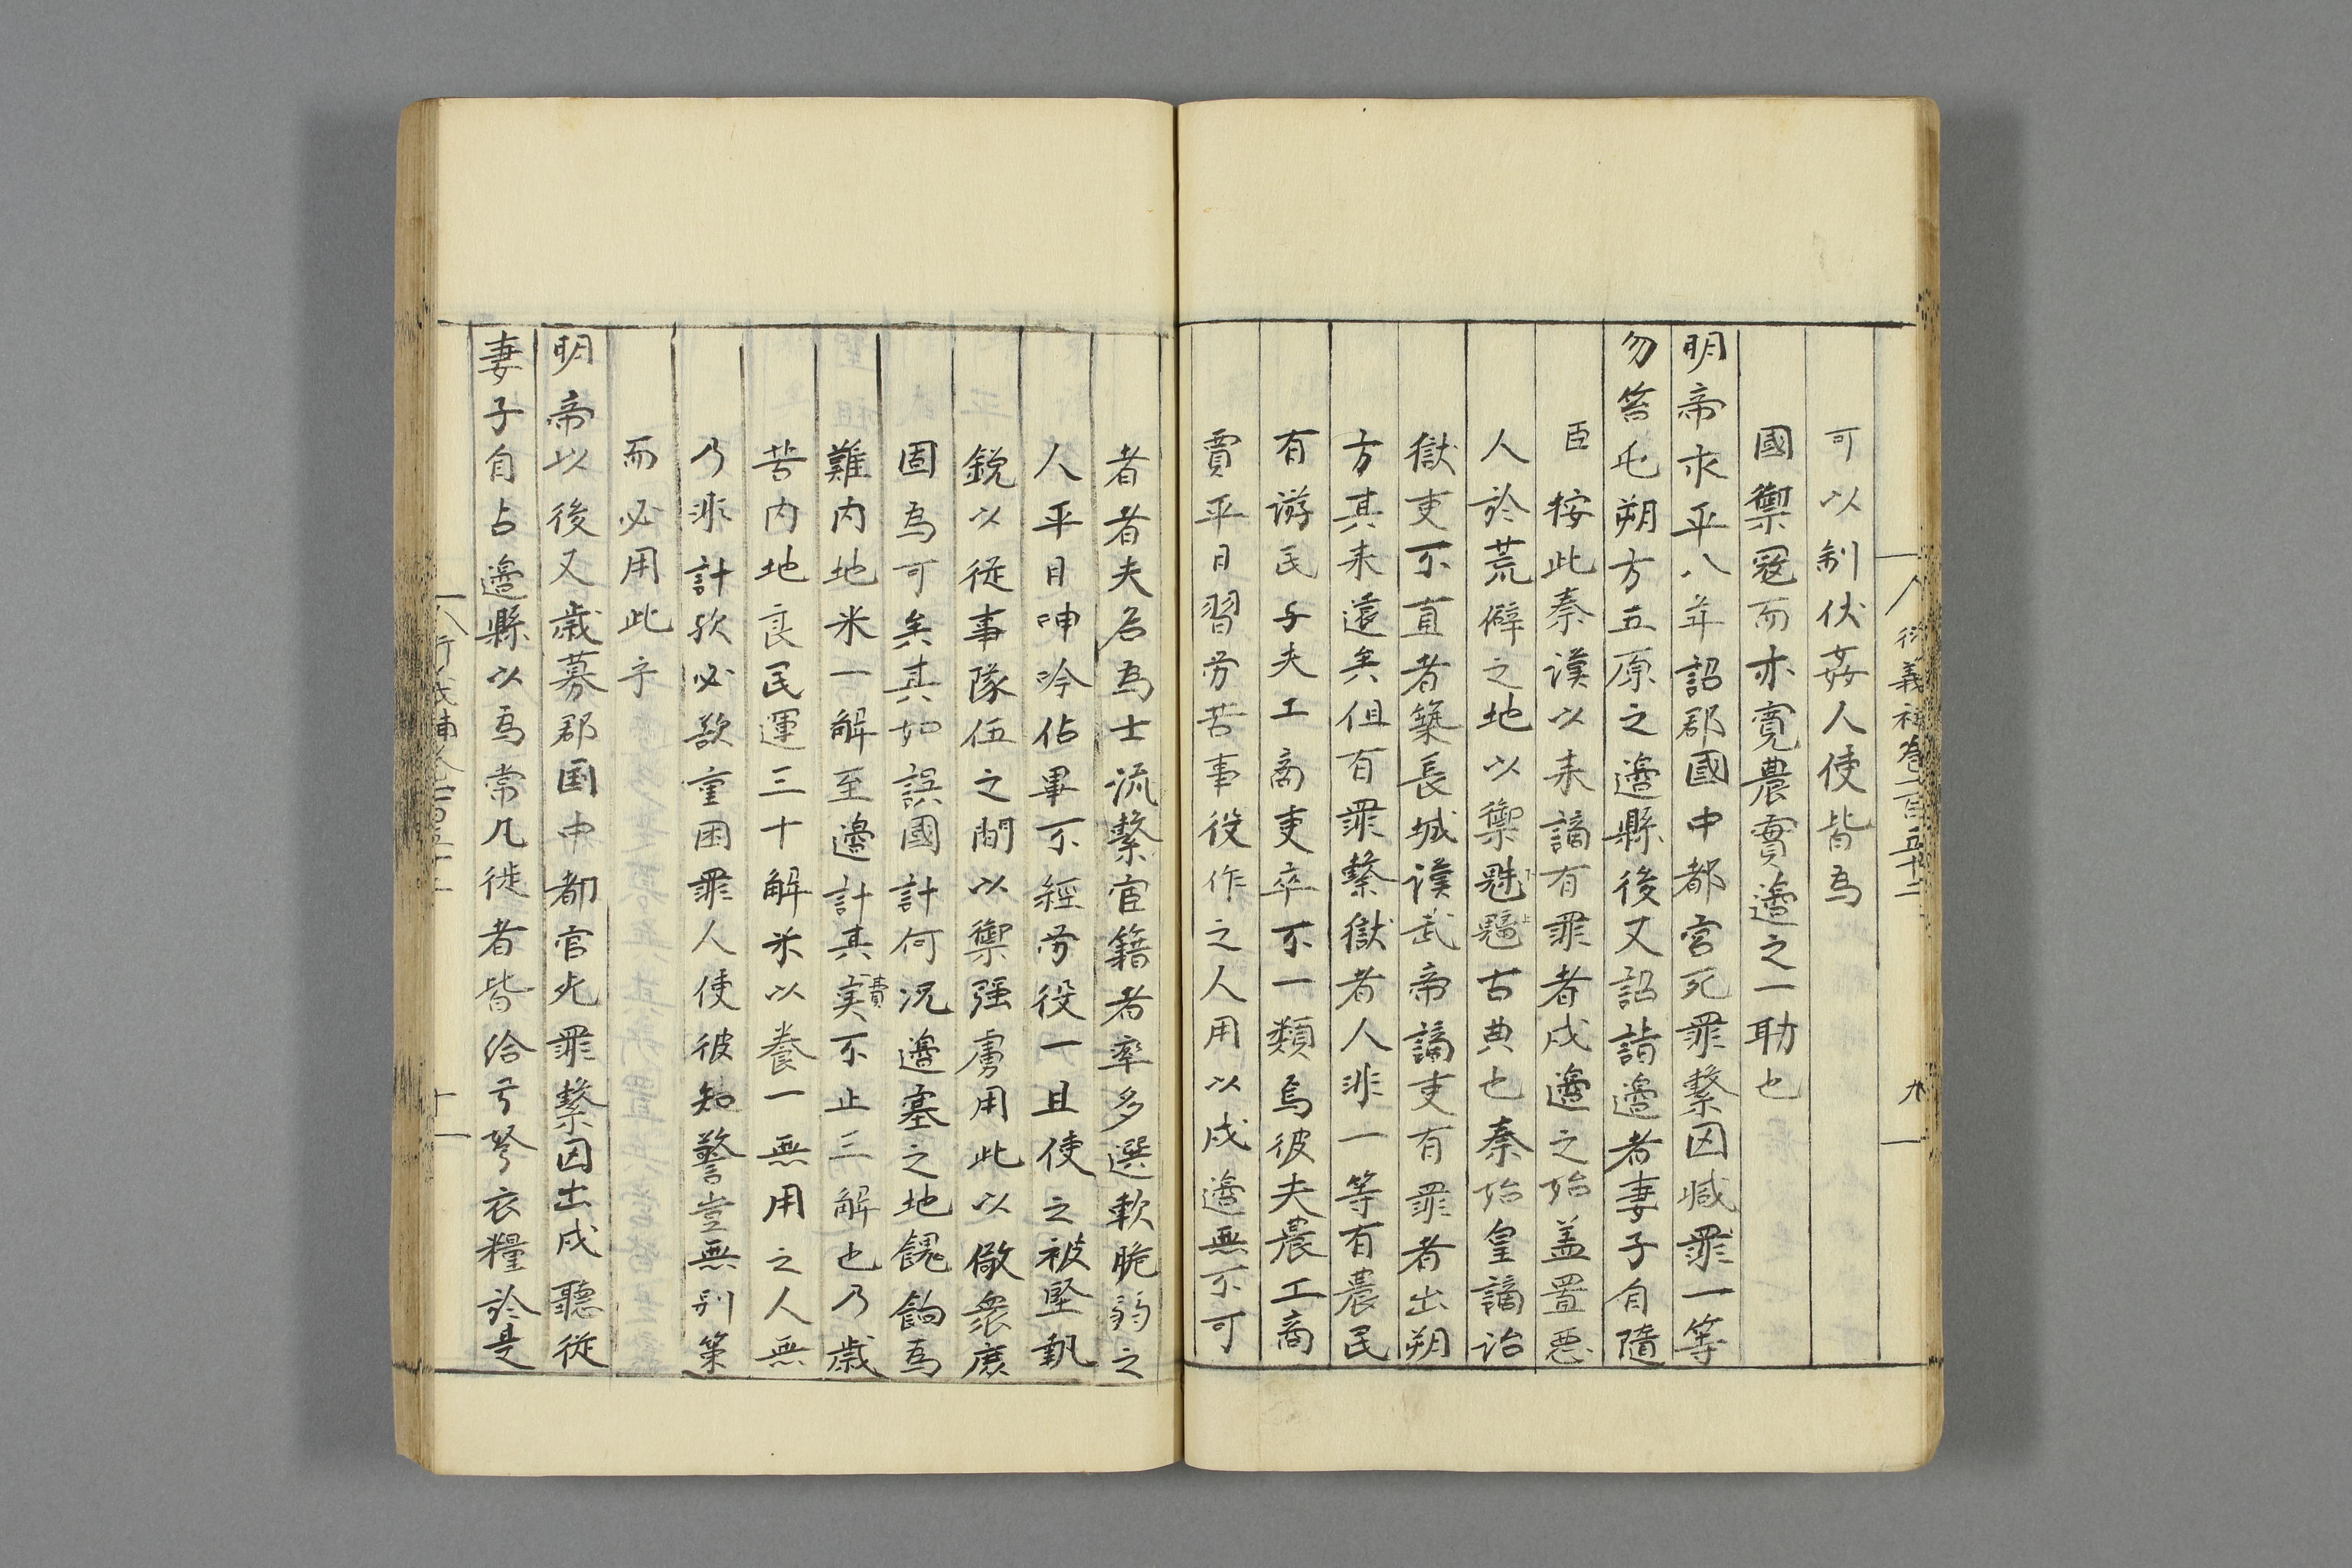 衍義補卷一百五十二
九
可以制伏姦人使皆爲
國禦寇而亦寬農實邊之一助也
明帝永平八年詔郡國中都官死罪繫囚减罪一等
勿笞屯朔方五原之邊縣後又詔詣邊者妻子自隨
臣按此秦漢以来謫有罪者戍邊之始盖置惡
人於荒僻之地以禦魅魑古典也秦始皇謫治
獄吏不直者築長城漢武帝謫吏有罪者出朔
方其来遠矣但有罪繫獄者人非一等有農民
有游民与夫工商吏卒不一類焉彼夫農工商
賈平日習労苦事役作之人用以戍邊無不可
者若夫名爲士流繫宦籍者率多選軟脆弱之
人平日呻吟佔畢不經労役一旦使之被堅執
銳以從事隊伍之間以禦强虜用此以儆衆庶
固爲可矣其如誤國計何况邊塞之地餽餉爲
難内地米一斛至邊計其費実不止三斛也乃歳
苦内地良民運三十斛米以養一無用之人無
乃非計欤必欲重困罪人使彼知警豈無别策
而必用此乎
明帝以後又歳募郡国中都官死罪繫囚出戍聽從
妻子自占邊縣以爲常凡徙者皆给弓弩衣糧於是